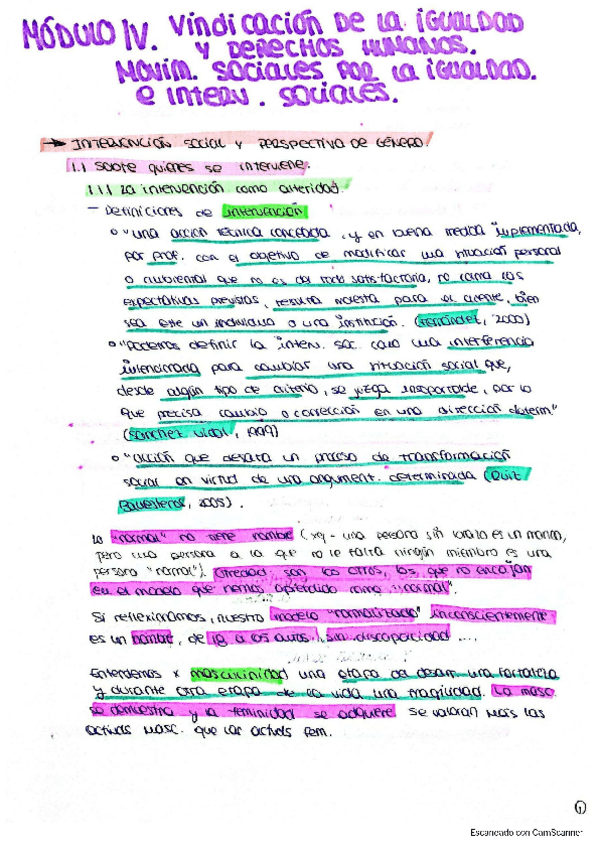 MÓDULO IV. VINDICACIÓN DE LA IGUALDAD
Y DERECHOS HUMANOS.
MOVIM. SOCIALES POR LA IGUALDAD.
E INTERV. SOCIALES.
→ INTERVENCIÓN SOCIAL Y PERSPECTIVA DE GÉNERO.
1.1 Sobre quienes se interviene.
1.1.1 La intervención como alteridad.
- Definiciones de intervención
o "una acción técnica concebida, y en buena medida implementada,
por prof. con el objetivo de modificar una situación personal
o ambiental que no es del todo satisfactoria, no colma las
expectativas previstas, resulta molesta para el cliente, bien
sea este un individuo o una institución. (Fernández, 2000)
o "Podemos definir la interv. soc. como una interferencia
intencionada para cambiar una situación social que,
desde algún tipo de criterio, se juzga insoportable, por lo
que precisa cambio o corrección en una dirección determ"
(Sánchez Vidal, 1999)
o "acción que desata un proceso de transformación
social en virtud de una argument. determinada (Ruiz
Ballesteros, 2005).
Lo "normal" no tiene nombre (xq - una persona sin brazo es un manco,
pero una persona a la que no le falta ningún miembro es una
persona "normal"). Otredad: son los otros, los que no encajan
en el modelo que hemos aprendido como "normal".
Si reflexionamos, nuestro modelo "normalizado" inconscientemente
es un hombre, de 18 a 60 años, sin discapacidad ...
Entendemos x masculinidad una etapa de desarr. una fortaleza
y durante otra etapa de la vida una fragilidad. La masc.
se demuestra y la feminidad se adquiere. Se valoran más las
activds masc. que las activds fem.
1
Escaneado con CamScanner